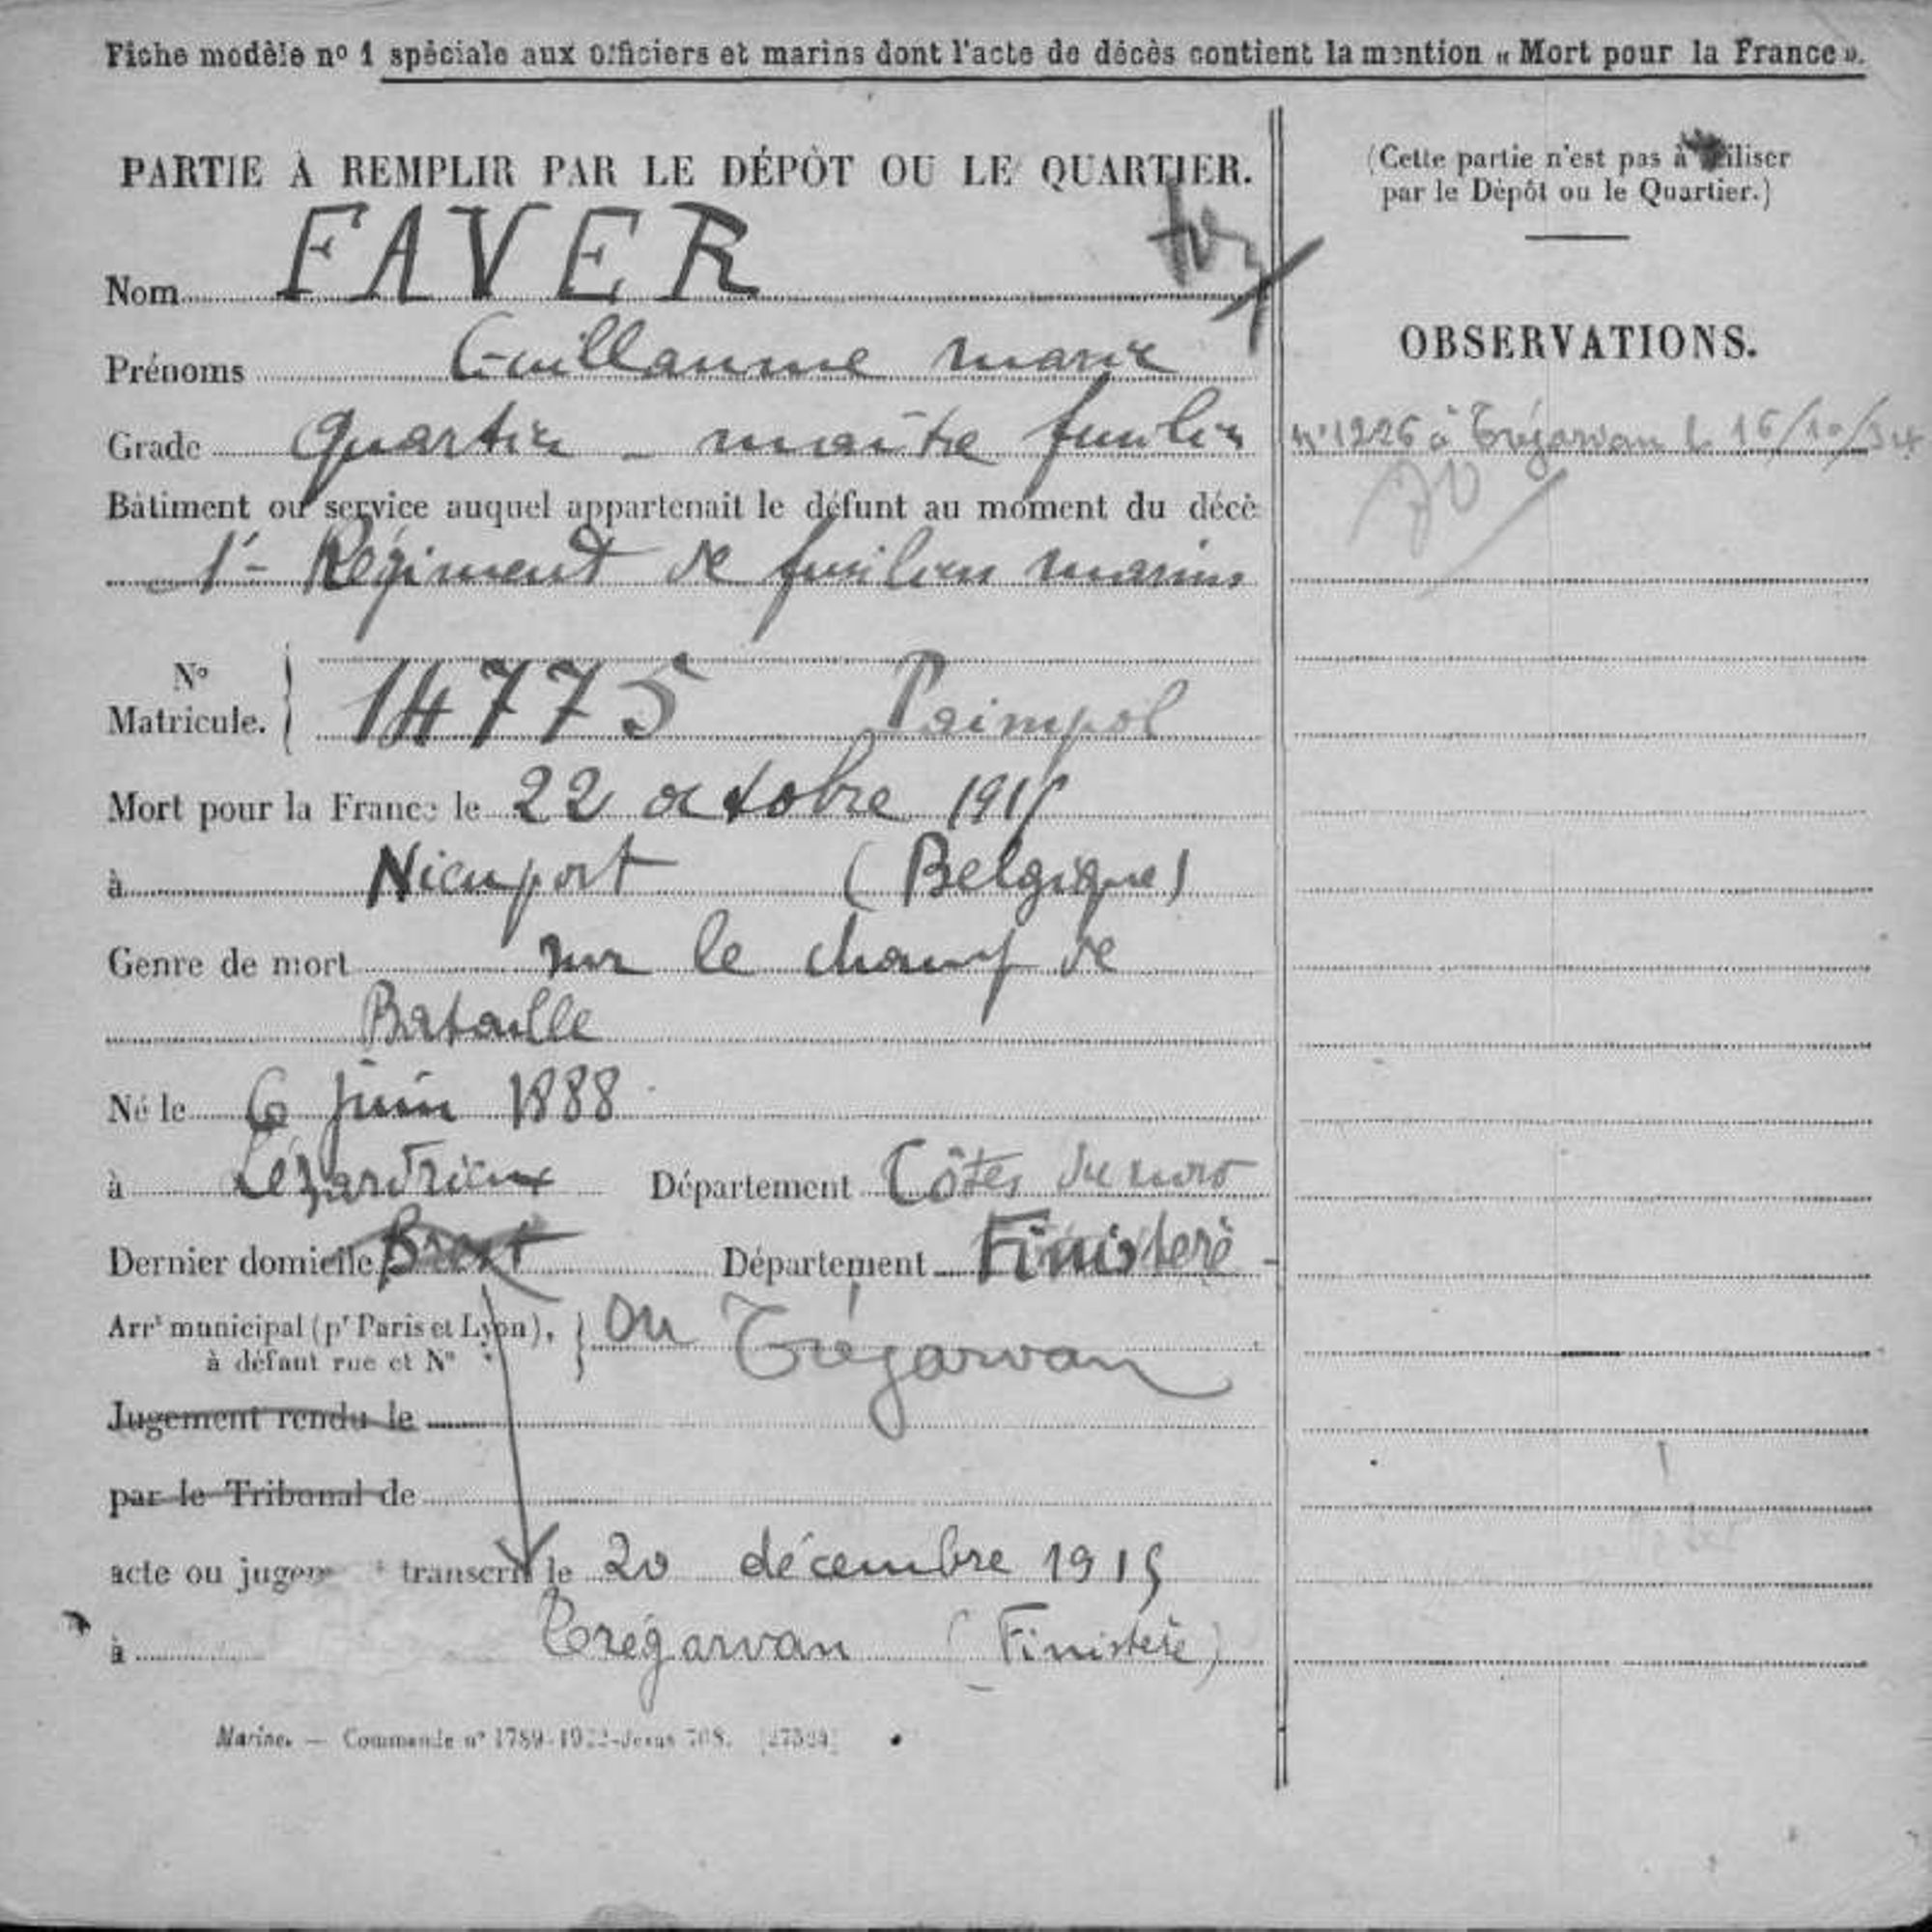 Fiche modèle nº 1 spéciale aux officiers et marins dont l'acte de décès contient la mention « Mort pour la France ».
PARTIE À REMPLIR PAR LE DÉPÔT OU LE QUARTIER.
Nom FAVER
Prénoms Guillaume Marie
Grade Quartier-maître fusilier
Bâtiment ou service auquel appartenait le défunt au moment du décè
1er Régiment de fusiliers marins
Nº Matricule. 14775 Paimpol
Mort pour la France le 22 octobre 1915
à Nieuport (Belgique)
Genre de mort sur le champ de
Bataille
Né le 6 juin 1888
à Lézardrieux Département Côtes du nord
Dernier domicile Brest Département Finistère
Arrt municipal (pr Paris et Lyon), à défaut rue et Nº ou Trégarvan
Jugement rendu le
par le Tribunal de
acte ou jugem transcrit le 20 décembre 1915
à Trégarvan (Finistère)
Marine. — Commande nº 1789-1922-Jésus 708. [27524]
(Cette partie n'est pas à utiliser
par le Dépôt ou le Quartier.)
OBSERVATIONS.
nº 1226 à Trégarvan le 16/10/34